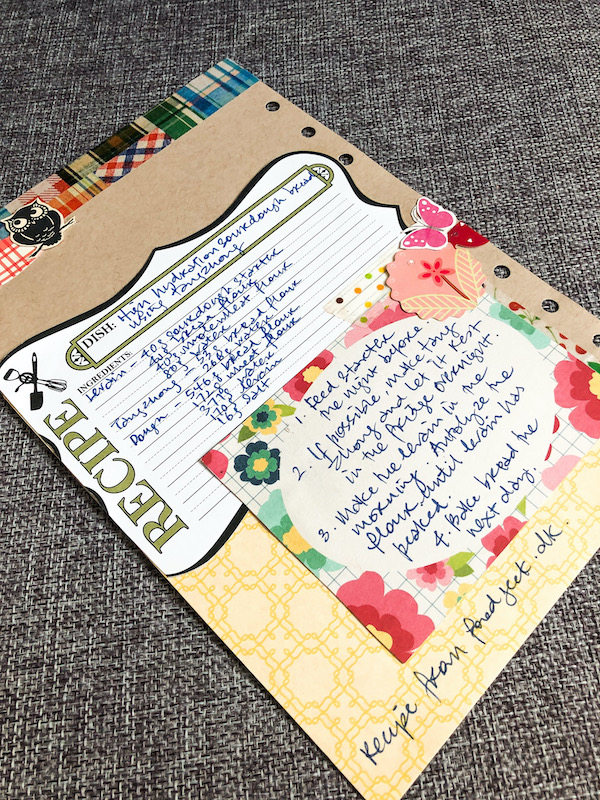 DISH: High hydration sourdough bread
using Tangzhong
INGREDIENTS:
Levain - 40g sourdough starter
flour
water
Tangzhong - 28g bread flour
water
Dough - 546g bread flour
wheat flour
water
levain
salt
RECIPE
1. Feed starter
the night before
2. If possible, make Tang
Zhong and let it rest
in the fridge overnight.
3. Make the levain in the
morning. Autolyze the
flour until levain has
peaked.
4. Bake bread the
next day.
Recipe from foodgeek.dk.